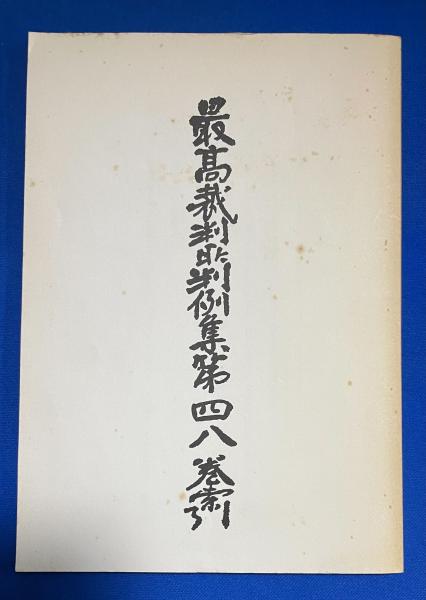 最高裁判所判例集第四八巻索引